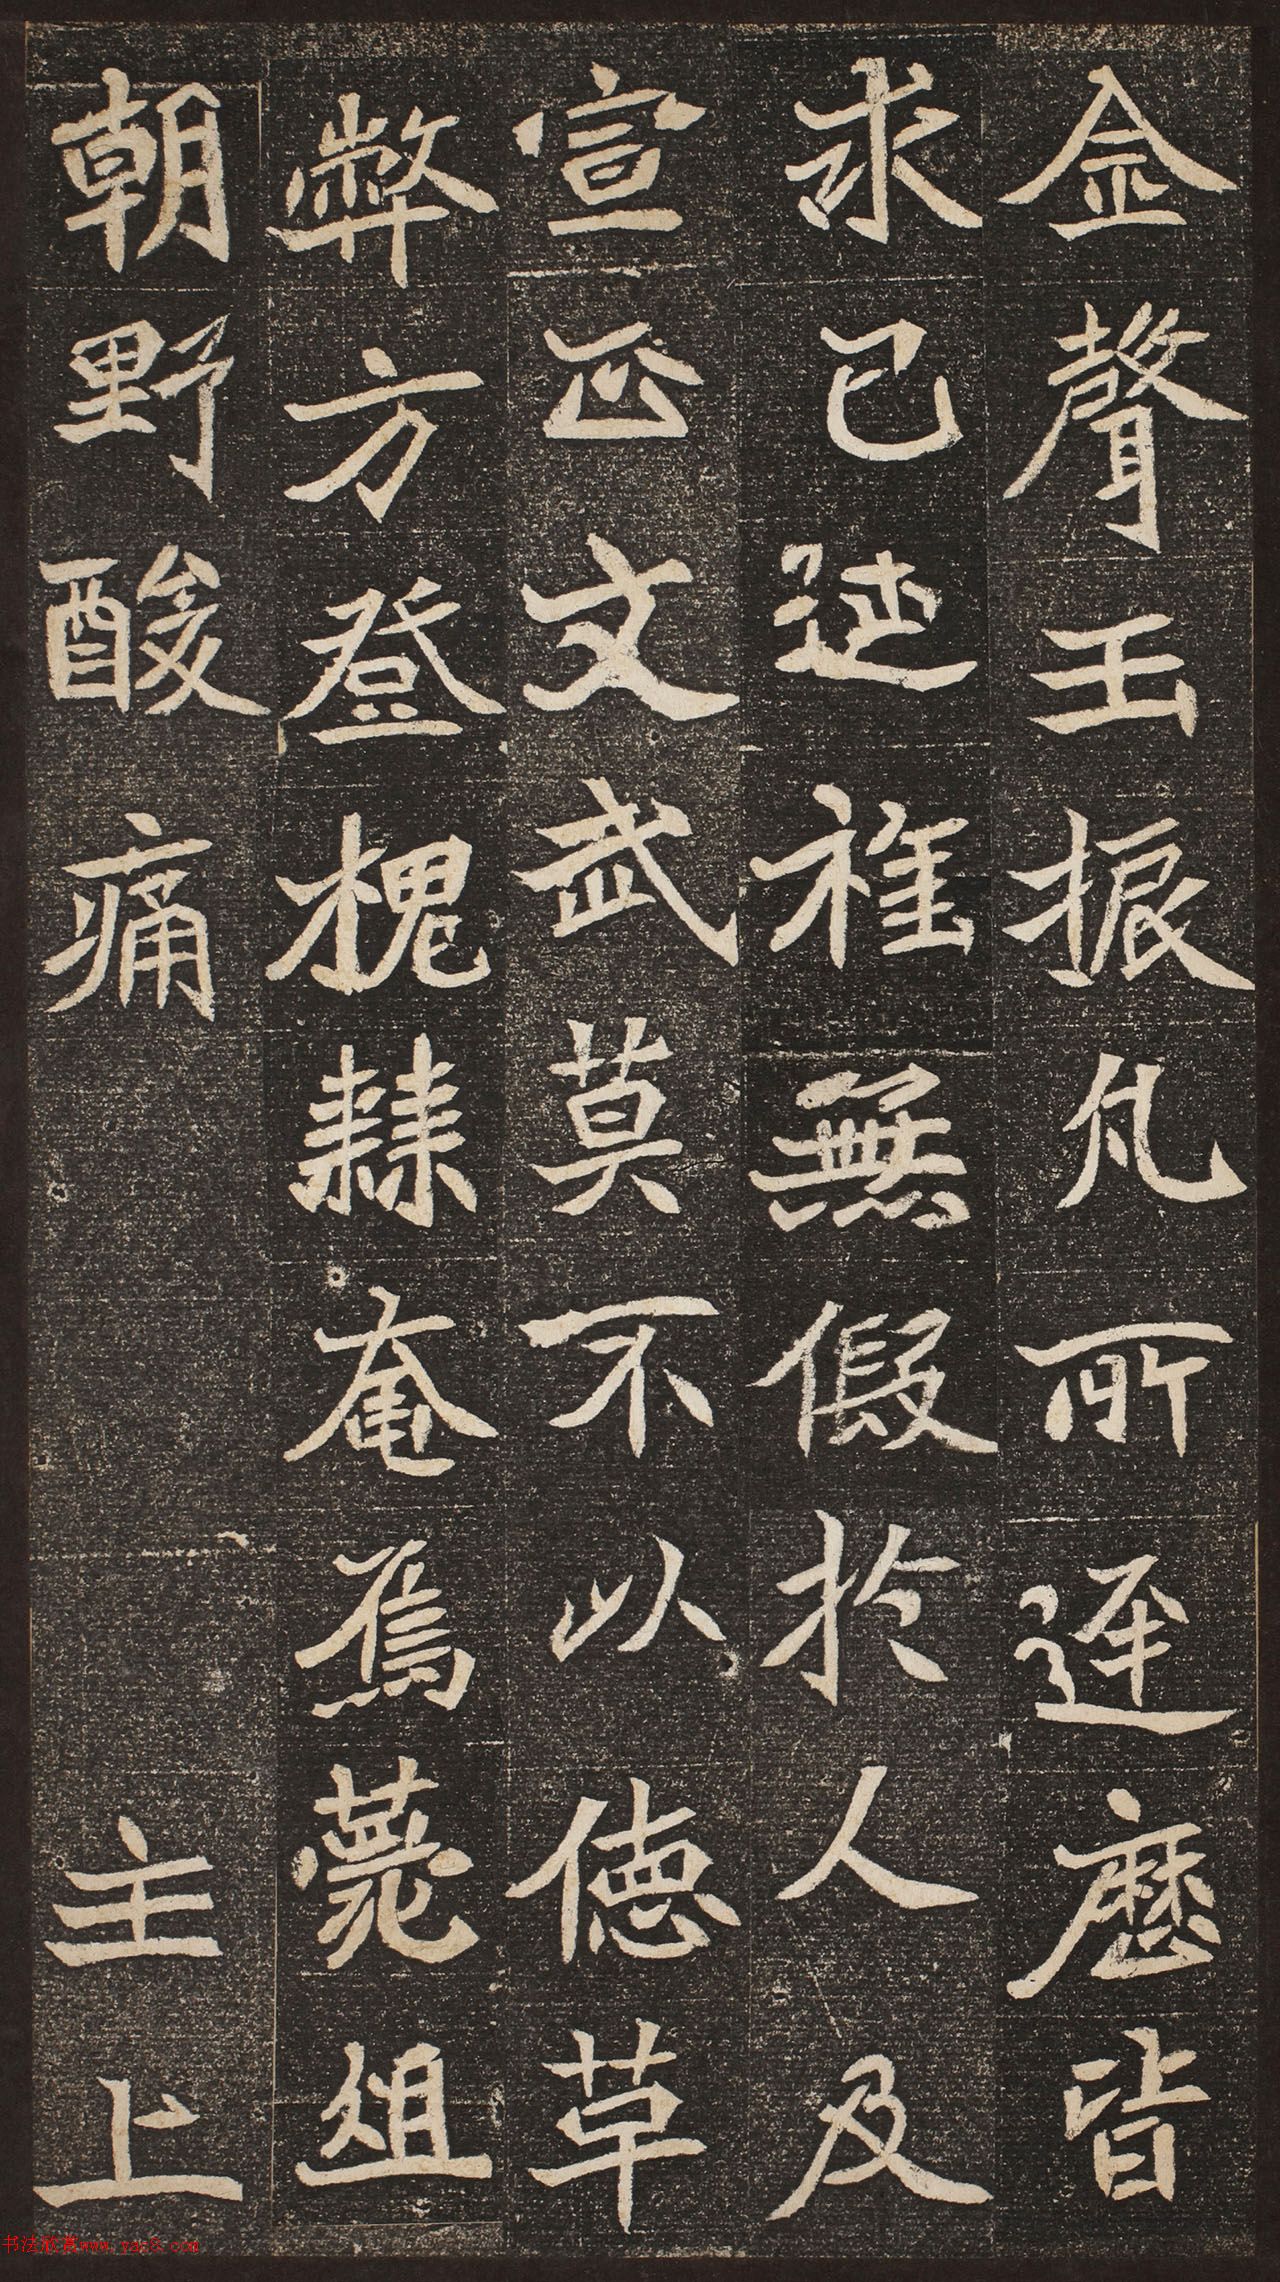 金聲玉振凡所遲歷皆
求已延祚無假於人及
宣正文武莫不以德草
弊方登槐棘奄焉薨俎
朝野酸痛主上
书法欣赏www.yac8.com